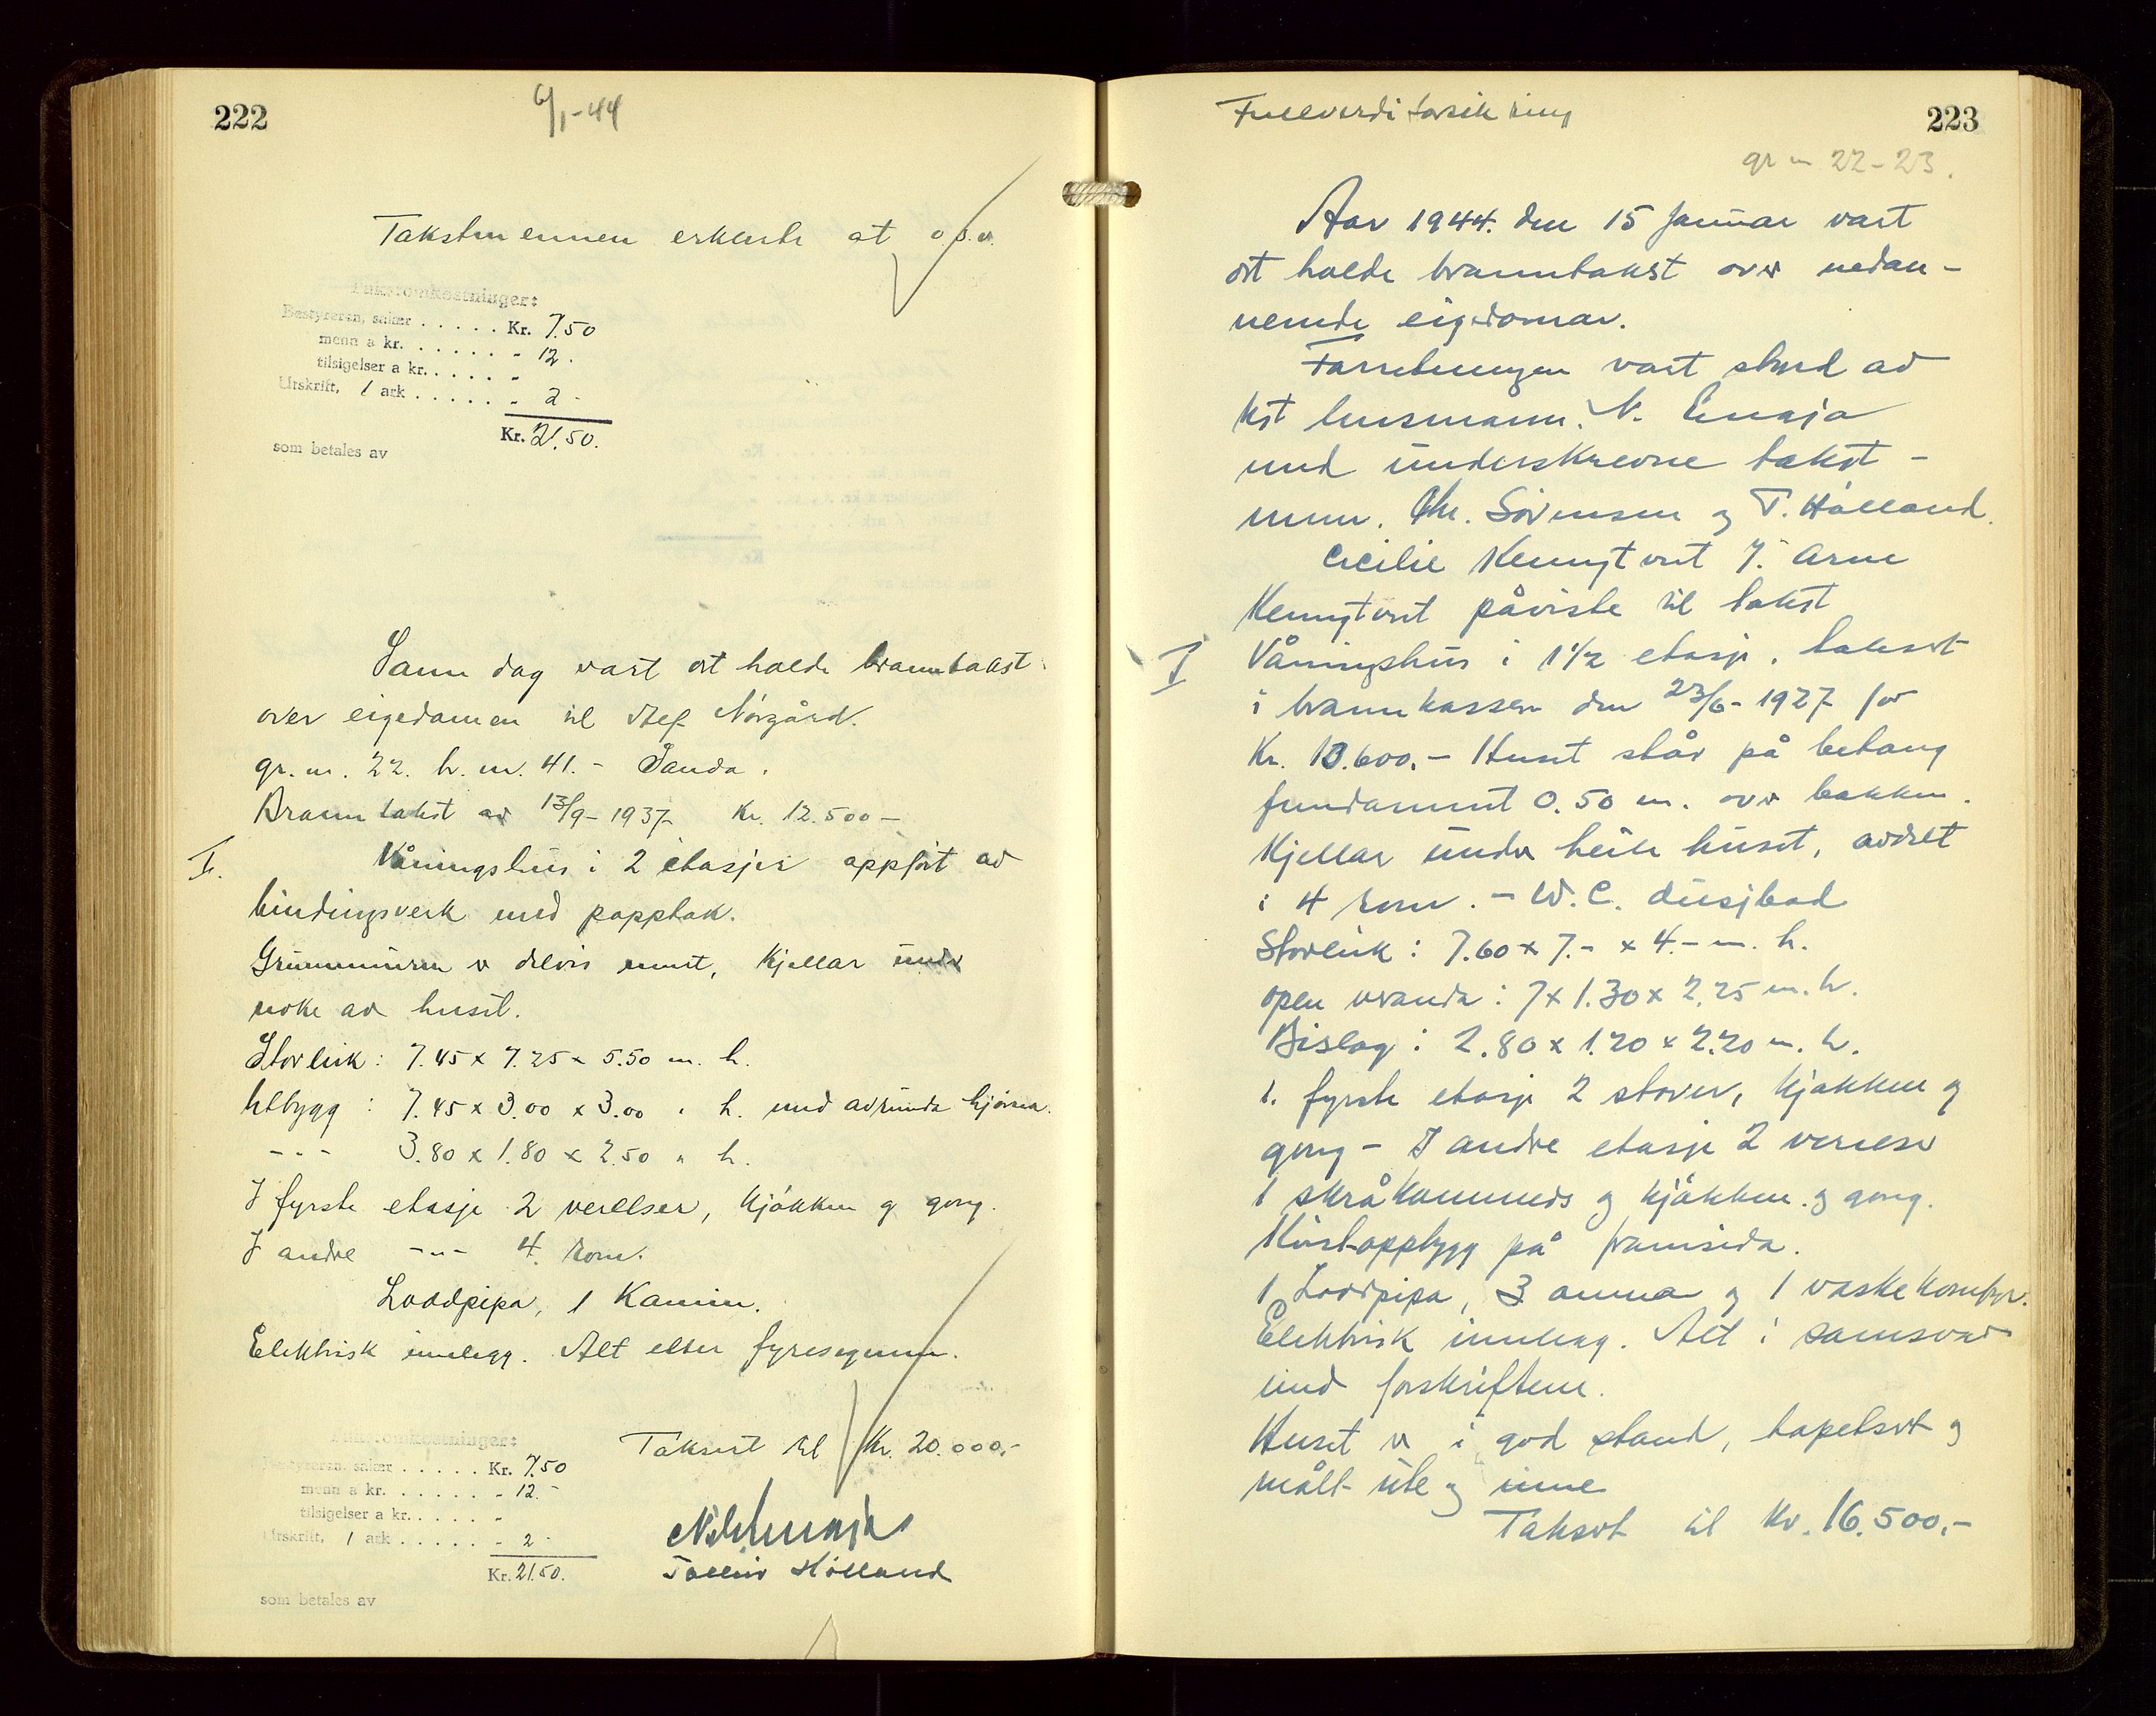 222
6/1-44
Takstmennen erklerte at o.s.v.
Takstomkostninger:
Bestyreren, salær . . . . . Kr. 7.50
menn a kr. . . . . . . - 12.
tilsigelser a kr. . . . . . -
Utskrift, 1 ark . . . . . . - 2 -
Kr. 21.50.
som betales av
Same dag vart det halde branntakst
over eigedomen til Alf Nörgård.
gr. nr. 22. br. nr. 41. - Sanda.
Branntakst av 13/9-1937 Kr. 12.500 -
I. Våningshus i 2 etasjer oppfört av
bindingsverk med papptak.
Grunnmuren er delvis murt, Kjellar under
noke av huset.
Storleik: 7.45 x 7.25 x 5.50 m. h.
Utbygg : 7.45 x 3.00 x 3.00 " h. med avrunda hjörner.
- " - 3.80 x 1.80 x 2.50 " h.
I fyrste etasje 2 verelser, kjökken og gang.
I andre - " - 4 rom.
Loddpipa, 1 Kamin.
Elektrisk innlegg. Alt etter fyresegnene.
Taksert til Kr. 20.000,-
Takstomkostninger:
Bestyreren, salær . . . . . Kr. 7.50
menn a kr. . . . . . . - 12. -
tilsigelser a kr. . . . . . -
Utskrift, 1 ark . . . . . . - 2 -
Kr. 21.50.
som betales av
Tolleiv Hölland
Fullverdiforsikring
223
gr nr 22-23.
Aar 1944. den 15 Januar vart
det halde branntakst over nedan-
nemnde eigedomar.
Forretningen vart styrd av
lensmann. N. Ernaja
med underskrevne takst-
menn. Chr. Sörensen og T. Hölland.
Cecilie Kemgtvet f. Arne
Kemgtvet påviste til takst
I Våningshus i 1 1/2 etasje. taksert
i brannkassen den 23/6-1927 for
Kr. 13.600.- Huset står på betong
fundament 0.50 m. over bakken.
Kjellar under heile huset, avdelt
i 4 rom. - W.C. dusjbad
Storleik : 7.60 x 7.- x 4.- m. h.
open veranda : 7 x 1.30 x 2.25 m. h.
Bislag : 2.80 x 1.20 x 2.20 m. h.
1. fyrste etasje 2 stover, kjökken og
gang - I andre etasje 2 verelser
1 skråkammers og kjökken. og gang.
Kvistoppbygg på framsida.
1 Loddpipa, 3 omna og 1 vaskekomfyr.
Elektrisk innlegg. Alt i samsvar
med forskriftene.
Huset er i god stand, tapetsert og
målt ute og inne
Taksert til Kr. 16.500,-